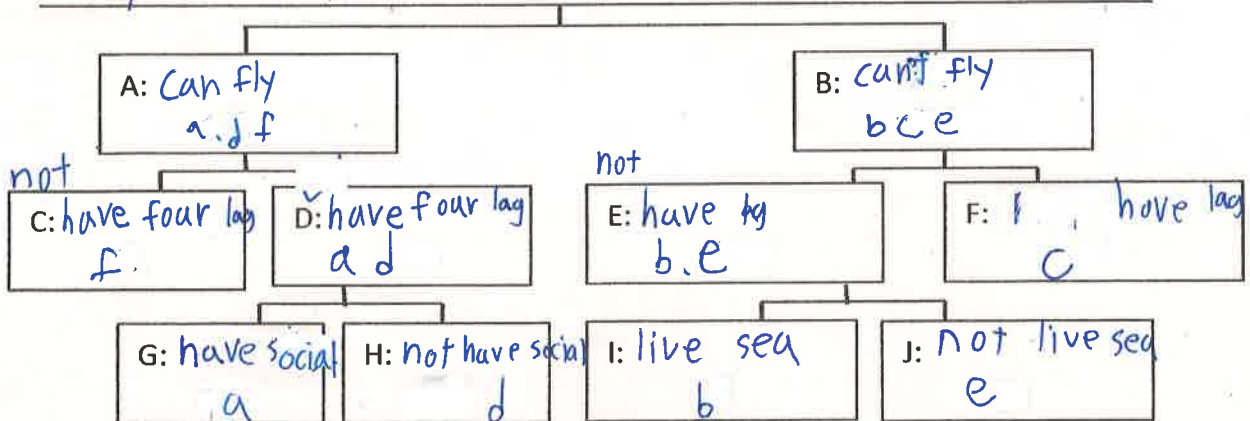 A: Can fly
a.d f
B: can't fly
b c e
not
C: have four lag
f.
D: have four lag
a d
not
E: have lag
b.e
F: hove lag
C
G: have social
a
H: not have social
d
I: live sea
b
J: not live sea
e